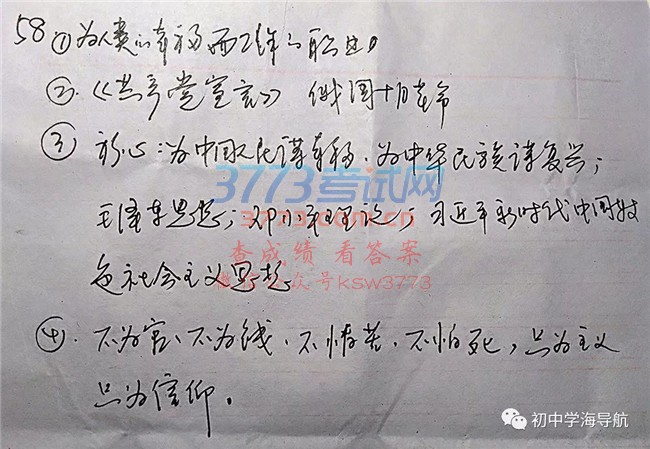 58 ① 为人类的幸福而工作的职业。
②.《共产党宣言》 俄国十月革命
③ 初心:为中国人民谋幸福、为中华民族谋复兴;
毛泽东思想;邓小平理论;习近平新时代中国特
色社会主义思想
④. 不为官、不为钱、不怕苦、不怕死,只为主义
只为信仰。
3773考试网
3773.com.cn
查成绩 看答案
微信公众号ksw3773
初中学海导航